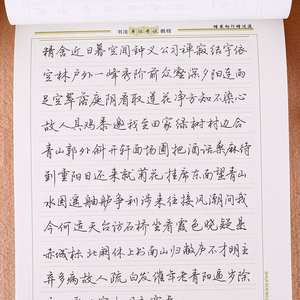 书法 教程
精舍近日暮空闻钟义公习禅寂结宇依
空林户外一峰秀阶前众壑深夕阳连雨
足空翠落庭阴看取莲花净方知不染心
故人具鸡黍邀我至田家绿树村边合
青山郭外斜开轩面场圃把酒话桑麻待
到重阳日还来就菊花挂席东南望青山
水国遥舳舻争利涉来往接风潮问我
今何适天台访石桥坐看霞色晓疑是
赤城标北阙休上书南山归敝庐不才明主
弃多病故人疏白发催年老青阳逼岁除